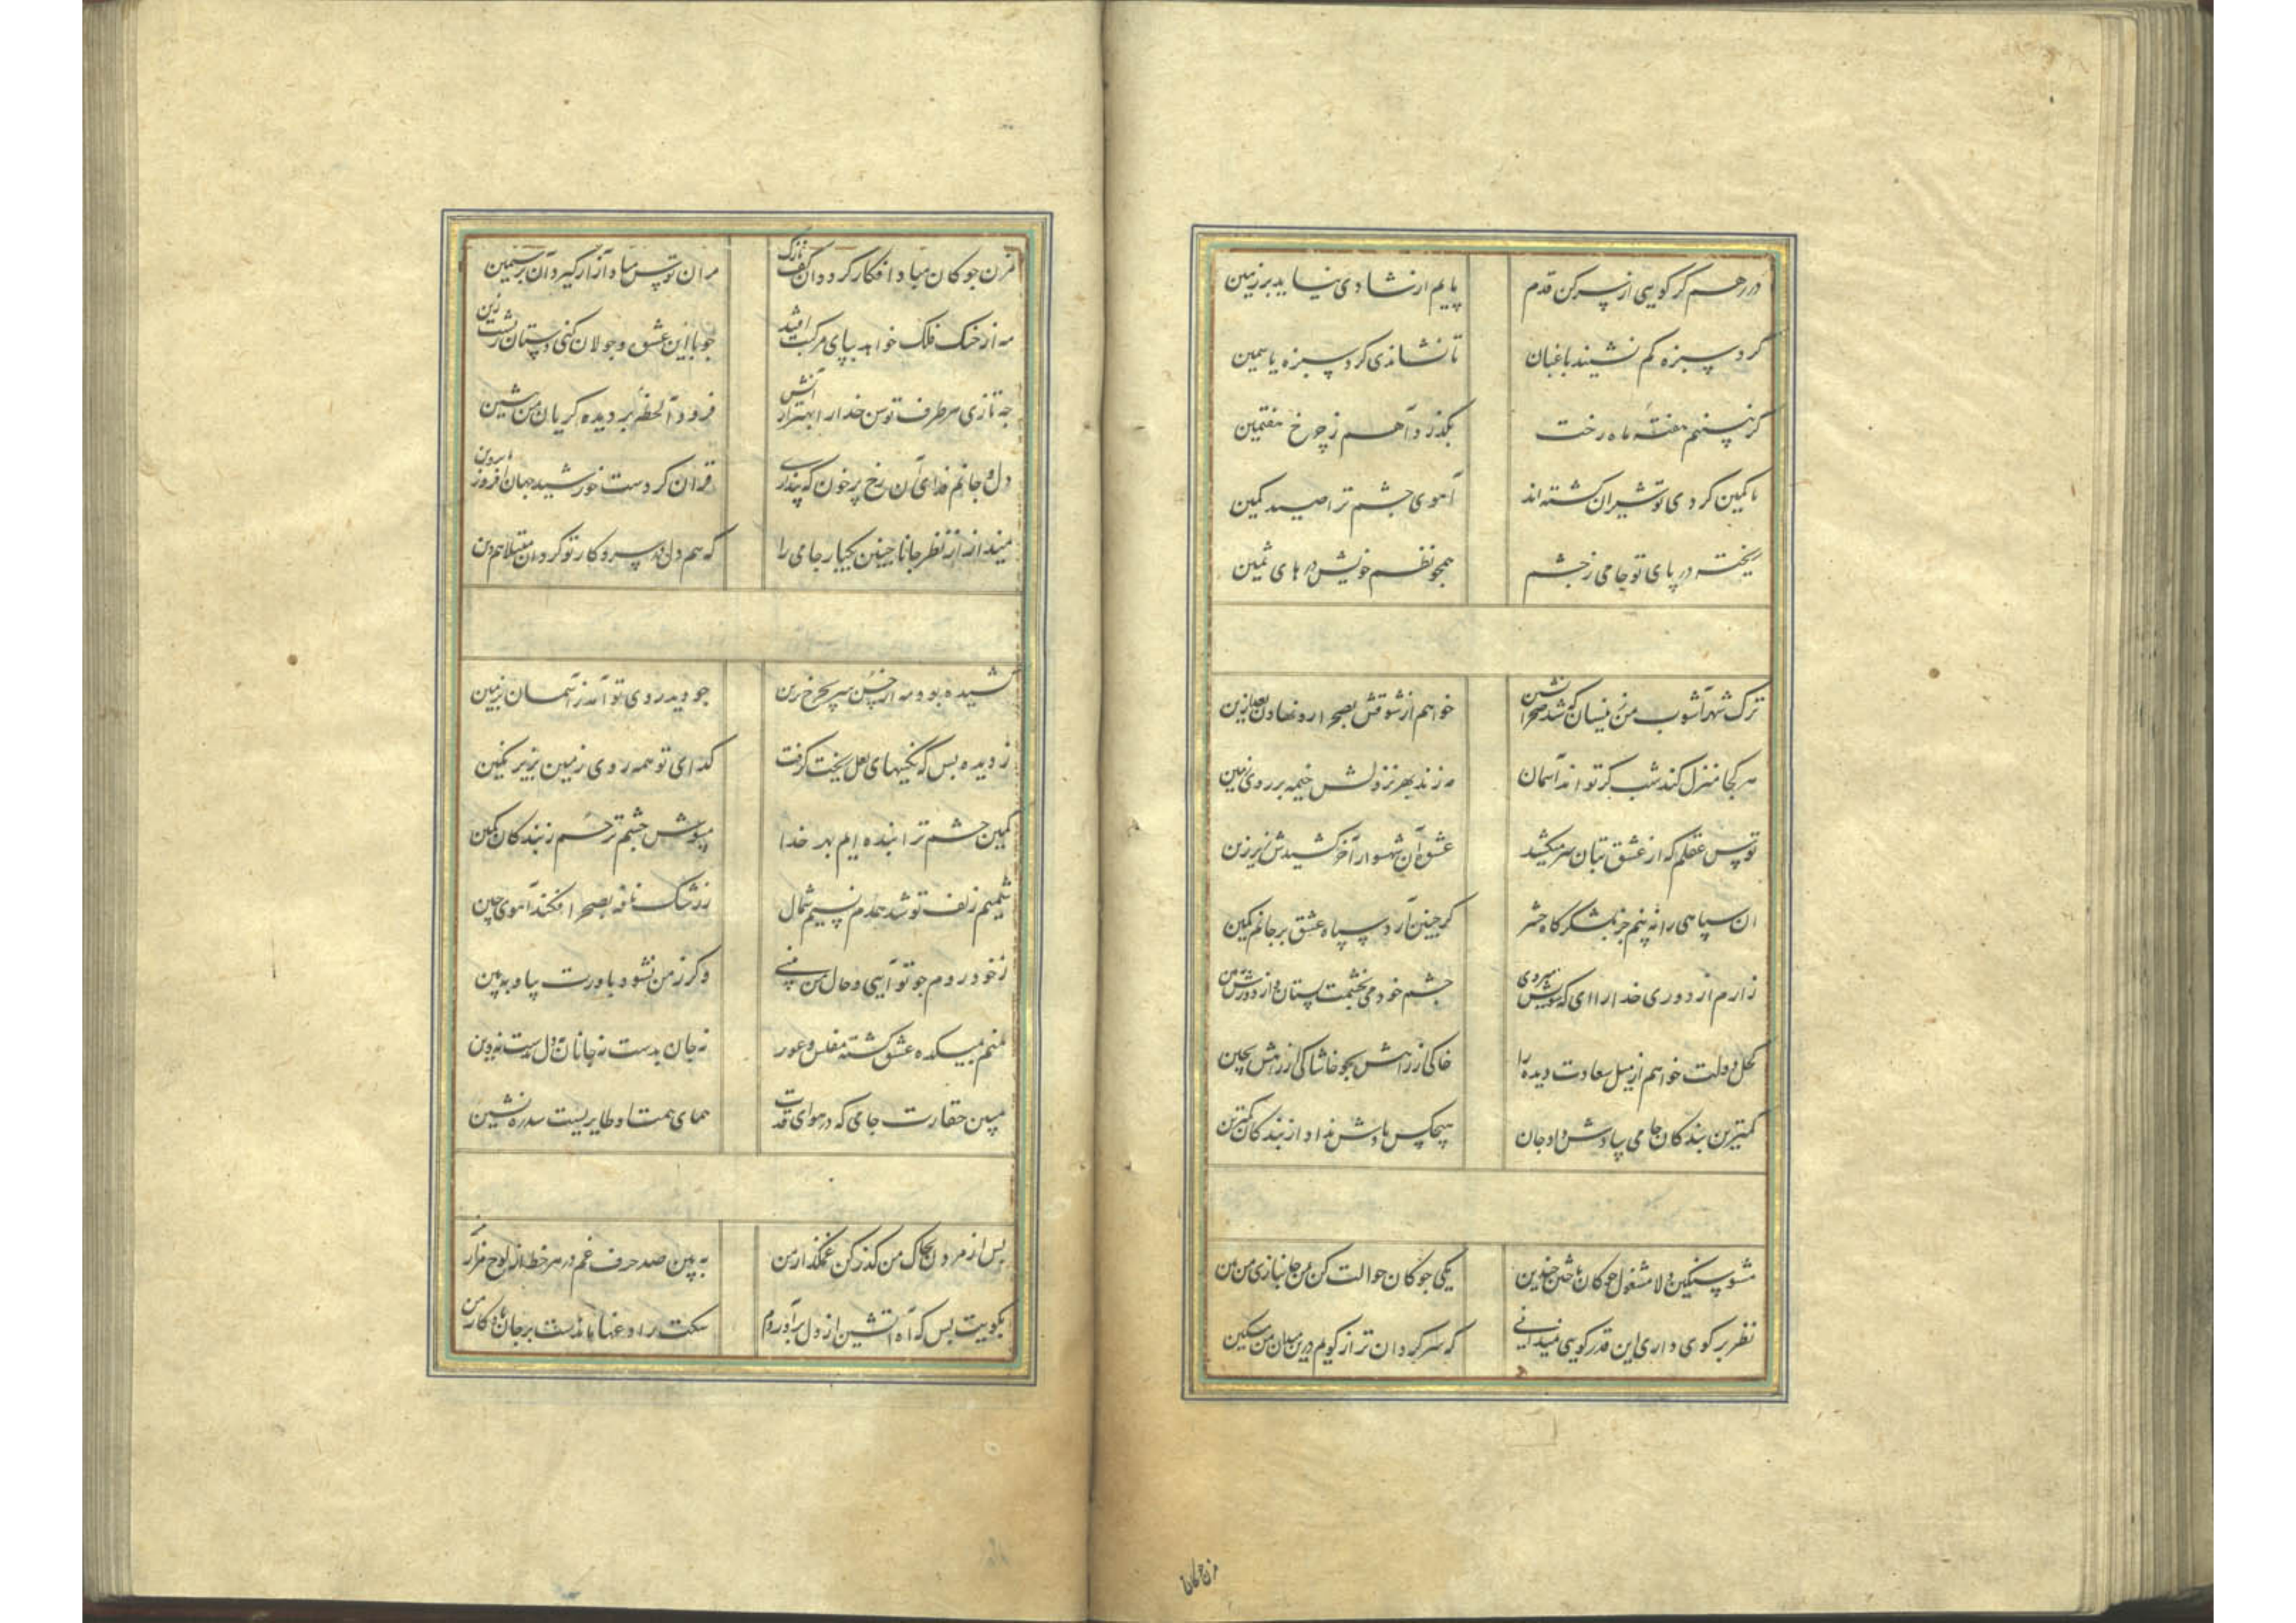 در رهم گر گویی از سر کن قدم پایم از شادی نیاید بر زمین
گرد سبزه کم نشیند باغبان تا نشاندی گرد سبزه یاسمین
گر نبینم هفته ماه رخت بگذرد آهم ز چرخ هفتمین
با کمین گردی تو شیران گشته‌اند آهوی چشم ترا صید کمین
ریخته در پای تو جامی ز چشم همچو نظم خویش درهای ثمین
ترک شهر آشوب من زینسان که شد صحرا نشین خواهم از شوقش بصحرا رو نهادن بعد ازین
هر کجا منزل کند شب گر تواند آسمان مه زند بهر نزولش خیمه بر روی زمین
توسن عقلم که از عشق بتان سر میکشید عشق آن شهسوار آخر کشیدش زیر زین
آن سپاهی را نه بینم جز بلشکرگاه حشر گر چنین آرد سپاه عشق بر جانم کمین
زارم از دوری خدا را ای که سویش میروی چشم خود می بخشمت بستان و از دورش ببین
کحل دولت خواهم از میل سعادت دیده را خاکی از راهش بجو خاشاکی از راهش بچین
کمترین بندگان جامی بیادش داد جان هیچکس یادش نداد از بندگان کمترین
مشو سنگین دلا مشغول چوکان باختن چندین یکی چوکان حوالت کن من جانبازی من بین
نظر بر گوی داری این قدر گویی نمیدانی که سرگردان تر از گویم درین میدان من مسکین
مزن چوکان
مزن چوکان مبادا فکار گردد آن کف نازک مران توسن مباد آزار گیرد آن بر سیمین
مه از خنک فلک خواهد بپای مرکبت افتد چو با این عشق و جولان کنی دستان نشست زین
چه تازی هر طرف توسن خدا را بهر آرامش فرود آ لحظه بر دیده گریان من بنشین
دل و جانم فدای آن رخ پر خون که پنداری قران کردست خورشید جهان افروز با پروین
مینداز از نظر جانا چنین یکبار جامی را که هم دل شد در سر و کار تو کرد آن مبتلا هم دین
کشیده بود مه از حسن سر بچرخ برین چو دید روی تو آمد ز آسمان بزمین
ز دیده بس که نگینهای لعل ریخت گرفت گدای تو همه روی زمین بزیر نگین
کمین چشم ترا بنده ایم بهر خدا مپوش چشم ترحم ز بندگان کمین
شمیم زلف تو شد همدم نسیم شمال ز رشک نافه بصحرا فکند آهوی چین
ز خود روم چو تو آیی و حال من بینی و گر ز من نشود باورت بیا و ببین
منم بمیکده عشق گشته مفلس و عور نه جان بدست نه جانان نه دل بدست نه دین
مبین حقارت جامی که در هوای قدت همای همت او طایریست سدره نشین
پس از مردن بخاک من گذر کن غمگسار من به بین صد حرف غم در هر خط از لوح مزار من
بکویت بس که آه آتشین از دل برآوردم سکت را داغها مانده است بر جان یادکار من